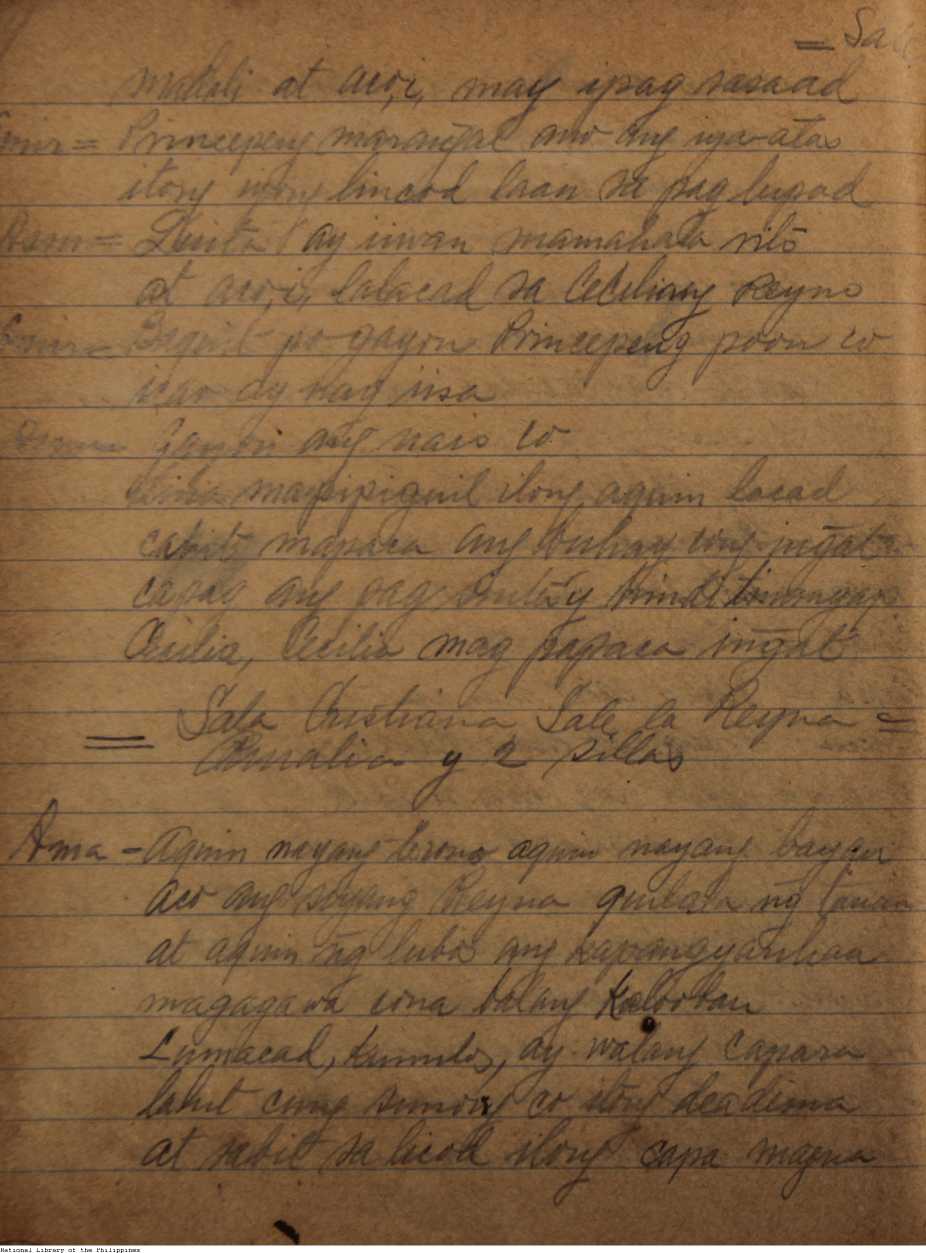 = Sale
madali at aco,i, may ipag sasaad
Emir = Princepeng marangal ano ang uya-atas
itong iyong lincod laan sa pag lugod
Asm = Ducta ay iiwan mamahala rito
at aco,i, lalacad sa Ceciliang Reyno
Emir = Baquit po gayon Princepeng poon co
icao ay nag iisa
Gayon ang nais co
mapipiguil itong aquin lacad
cahit mapaca ang buhay cong ingat
capag ang pag sintay hindi tinangap
Cecilia, Cecilia mag papaca ingat
= Sala Cristiana Sale la Reyna =
Amalia y 2 sillas
Ama - Aquin nayang trono aquin nayang bayan
aco ang siyang Reyna quilala ng tanan
at aquin ng lubos ang kapangyarihan
magagawa cona balang kalooban
Lumacad, kumilos, ay walang capara
lalut cung sunong co itong deadema
at sabit sa licod itong capa magna
National Library of the Philippines